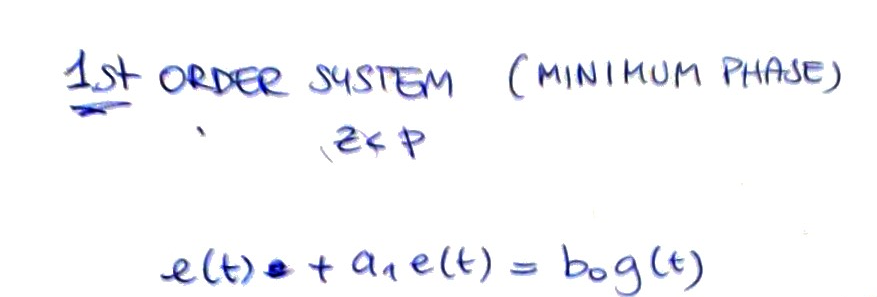 1st ORDER SYSTEM (MINIMUM PHASE)
z < p
e(t) + a₁e(t) = b₀g(t)